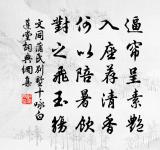 逼帘呈素艳
入座荐清香
何以陪暑饮
对之飞玉觞
文同蒲氏别墅十咏白
莲堂 词典网集